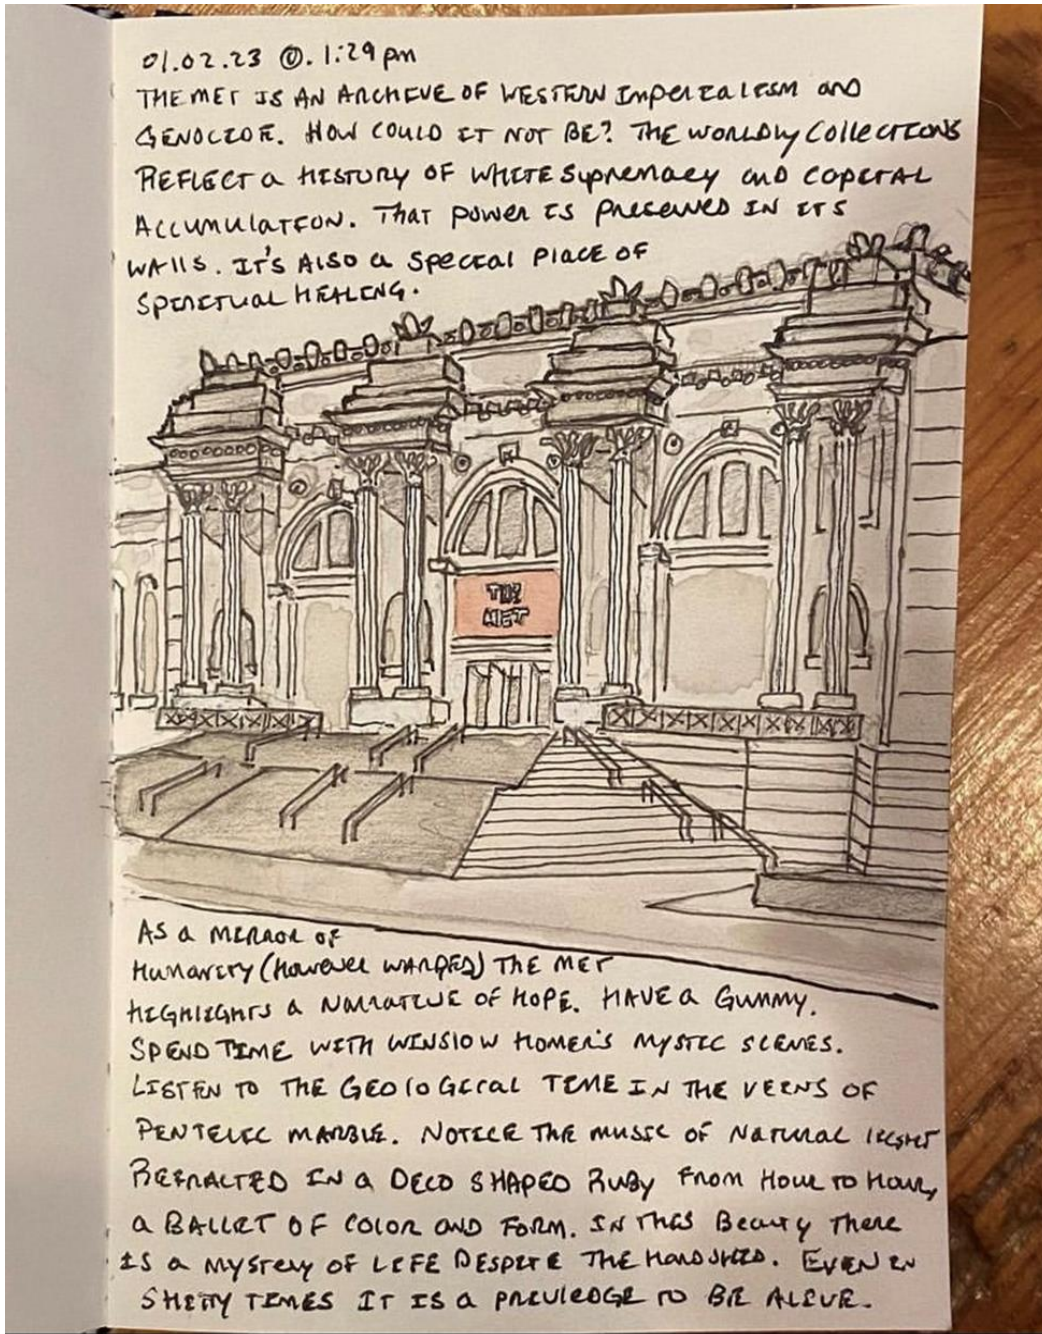 01.02.23 @. 1:29pm
THE MET IS AN ARCHIVE OF WESTERN IMPERIALISM AND
GENOCIDE. HOW COULD IT NOT BE? THE WORLDLY COLLECTIONS
REFLECT a HISTORY OF WHITE SUPREMACY AND CAPITAL
ACCUMULATION. THAT POWER IS PRESERVED IN ITS
WALLS. IT'S ALSO a SPECIAL PLACE OF
SPIRITUAL HEALING.
THE
MET
AS a MIRROR OF
HUMANITY (HOWEVER WARPED) THE MET
HIGHLIGHTS a NARRATIVE OF HOPE. HAVE a GUMMY.
SPEND TIME WITH WINSLOW HOMER'S MYSTIC SCENES.
LISTEN TO THE GEOLOGICAL TIME IN THE VEINS OF
PENTELIC MARBLE. NOTICE THE MUSIC OF NATURAL LIGHT
REFRACTED IN a DECO SHAPED RUBY FROM HOUR TO HOUR,
a BALLET OF COLOR AND FORM. IN THIS BEAUTY THERE
IS a MYSTERY OF LIFE DESPITE THE HARDSHIP. EVEN IN
SHITTY TIMES IT IS a PRIVILEDGE TO BE ALIVE.